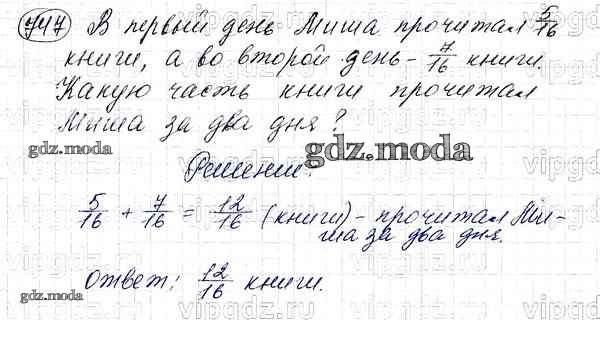 747 В первый день Миша прочитал 5/16
книги, а во второй день - 7/16 книги.
Какую часть книги прочитал
Миша за два дня?
gdz.moda
gdz.moda
Решение.
5/16 + 7/16 = 12/16 (книги) - прочитал Ми-
ша за два дня.
Ответ: 12/16 книги.
gdz.moda
vipgdz.ru